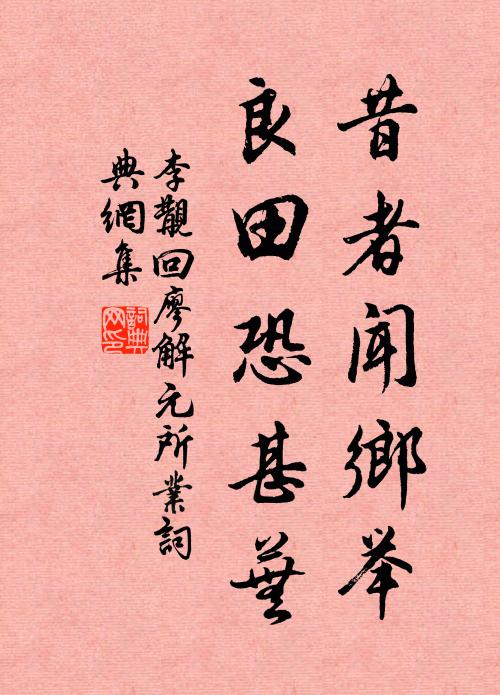 昔者闻鄉举
良田恐甚蕪
李覯回廖解元所業詞
典網集
詞典网印